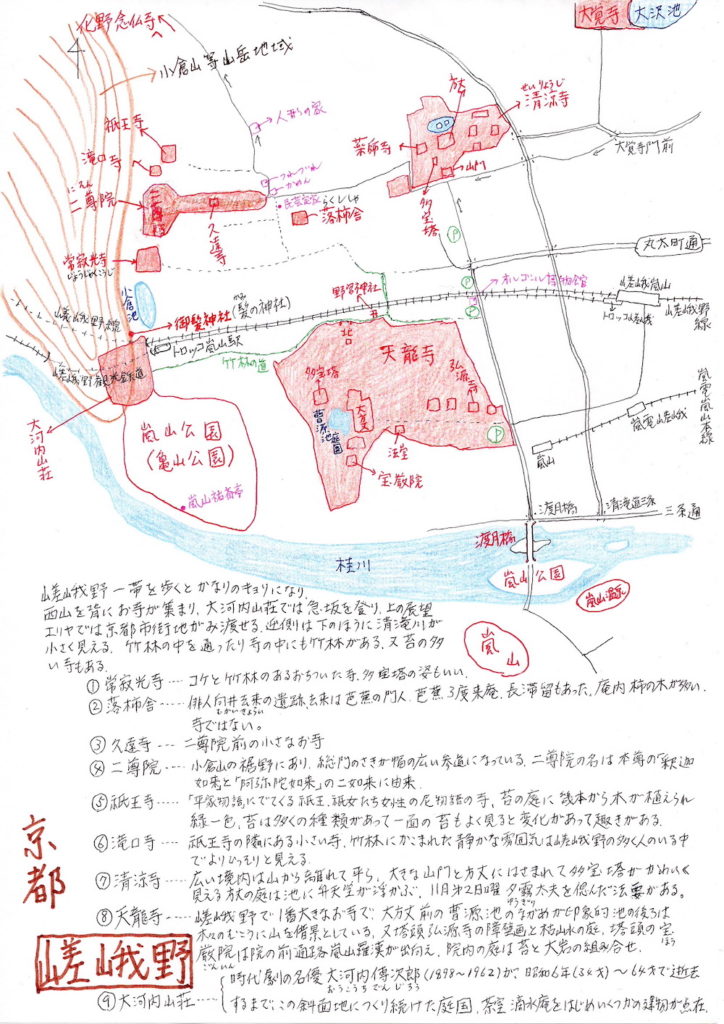 化野念仏寺へ
大覚寺
大沢池
小倉山等山岳地域
人形の家
祇王寺
滝口寺
にそんいん
二尊院
二尊院
久遠寺
つれづれ
民芸
らくししゃ
落柿舎
方丈
せいりょうじ
清涼寺
薬師寺
山門
多宝塔
大覚寺門前
P
丸太町通
常寂光寺
じょうじゃくこうじ
小倉池
御髪神社
(髪の神社)
野宮神社
オルゴール博物館
嵯峨嵐山
嵯峨野線
トロッコ嵯峨
P
P
嵯峨野線
嵯峨野観光鉄道
トロッコ嵐山駅
竹林の道
北口
天龍寺
多宝塔
曹源池庭園
大方丈
弘源寺
法堂
宝厳院
P
大河内山荘
嵐山公園
(亀山公園)
嵐山祐斎亭
嵐電嵐山本線
嵐電嵯峨
嵐山
渡月橋
清滝道三条
三条通
渡月橋
桂川
嵐山公園
嵐山温泉
嵐山
嵯峨野一帯を歩くとかなりのキョリになり、
西山を背にお寺が集まり、大河内山荘では急坂を登り、上の展望
エリヤでは京都市街地がみ渡せる、逆側は下のほうに清滝川が
小さく見える。竹林の中を通ったり寺の中にも竹林がある、又苔の多
い寺もある。
① 常寂光寺 ---- コケと竹林のあるおちついた寺、多宝塔の姿もいい。
② 落柿舎 ---- 俳人向井去来の遺跡去来は芭蕉の門人、芭蕉3度来庵、長滞留もあった。庵内柿の木が多い。
むかいきょらい
寺ではない。
③ 久遠寺 --- 二尊院前の小さなお寺
④ 二尊院 ---- 小倉山の裾野にあり、総門のさきが幅の広い参道になっている、二尊院の名は本尊の「釈迦
如来」と「阿弥陀如来」の二如来に由来。
⑤ 祇王寺 ---- 「平家物語」にでてくる祇王、祇女たち女性の尼物語の寺、苔の庭に幾本から木が植えられ
緑一色、苔は多くの種類があって一面の苔もよく見ると変化があって趣きがある。
⑥ 滝口寺 ---- 祇王寺の隣にある小さい寺、竹林にかこまれた静かな雰囲気は嵯峨野の多く人のいる中
でよりひっそりと見える。
⑦ 清涼寺 ---- 広い境内は山から離れて平ら、大きな山門と方丈にはさまれて多宝塔がかわいく
見える放の庭は池に弁天堂が浮かぶ、11月第2日曜夕霧太夫を偲んだ法要がある。
ゆうぎり
⑧ 天龍寺 ---- 嵯峨野で1番大きなお寺で、大方丈前の曹源池のながめが印象的池の後ろは
松のむこうに山を借景としている、又塔頭弘源寺の障壁画と枯山水の庭、塔頭の宝
ほう
厳院は院の前通路嵐山羅漢が出向え、院内の庭は苔と大岩の組み合せ。
ごんいん
⑨ 大河内山荘 ---- 時代劇の名優大河内傳次郎(1898~1962)が、昭和6年(34才)~64才で逝去
おおこうちでんじろう
するまで、この斜面地につくり続けた庭園、茶室滴水庵をはじめいくつかの建物が点在。
京都
嵯峨野